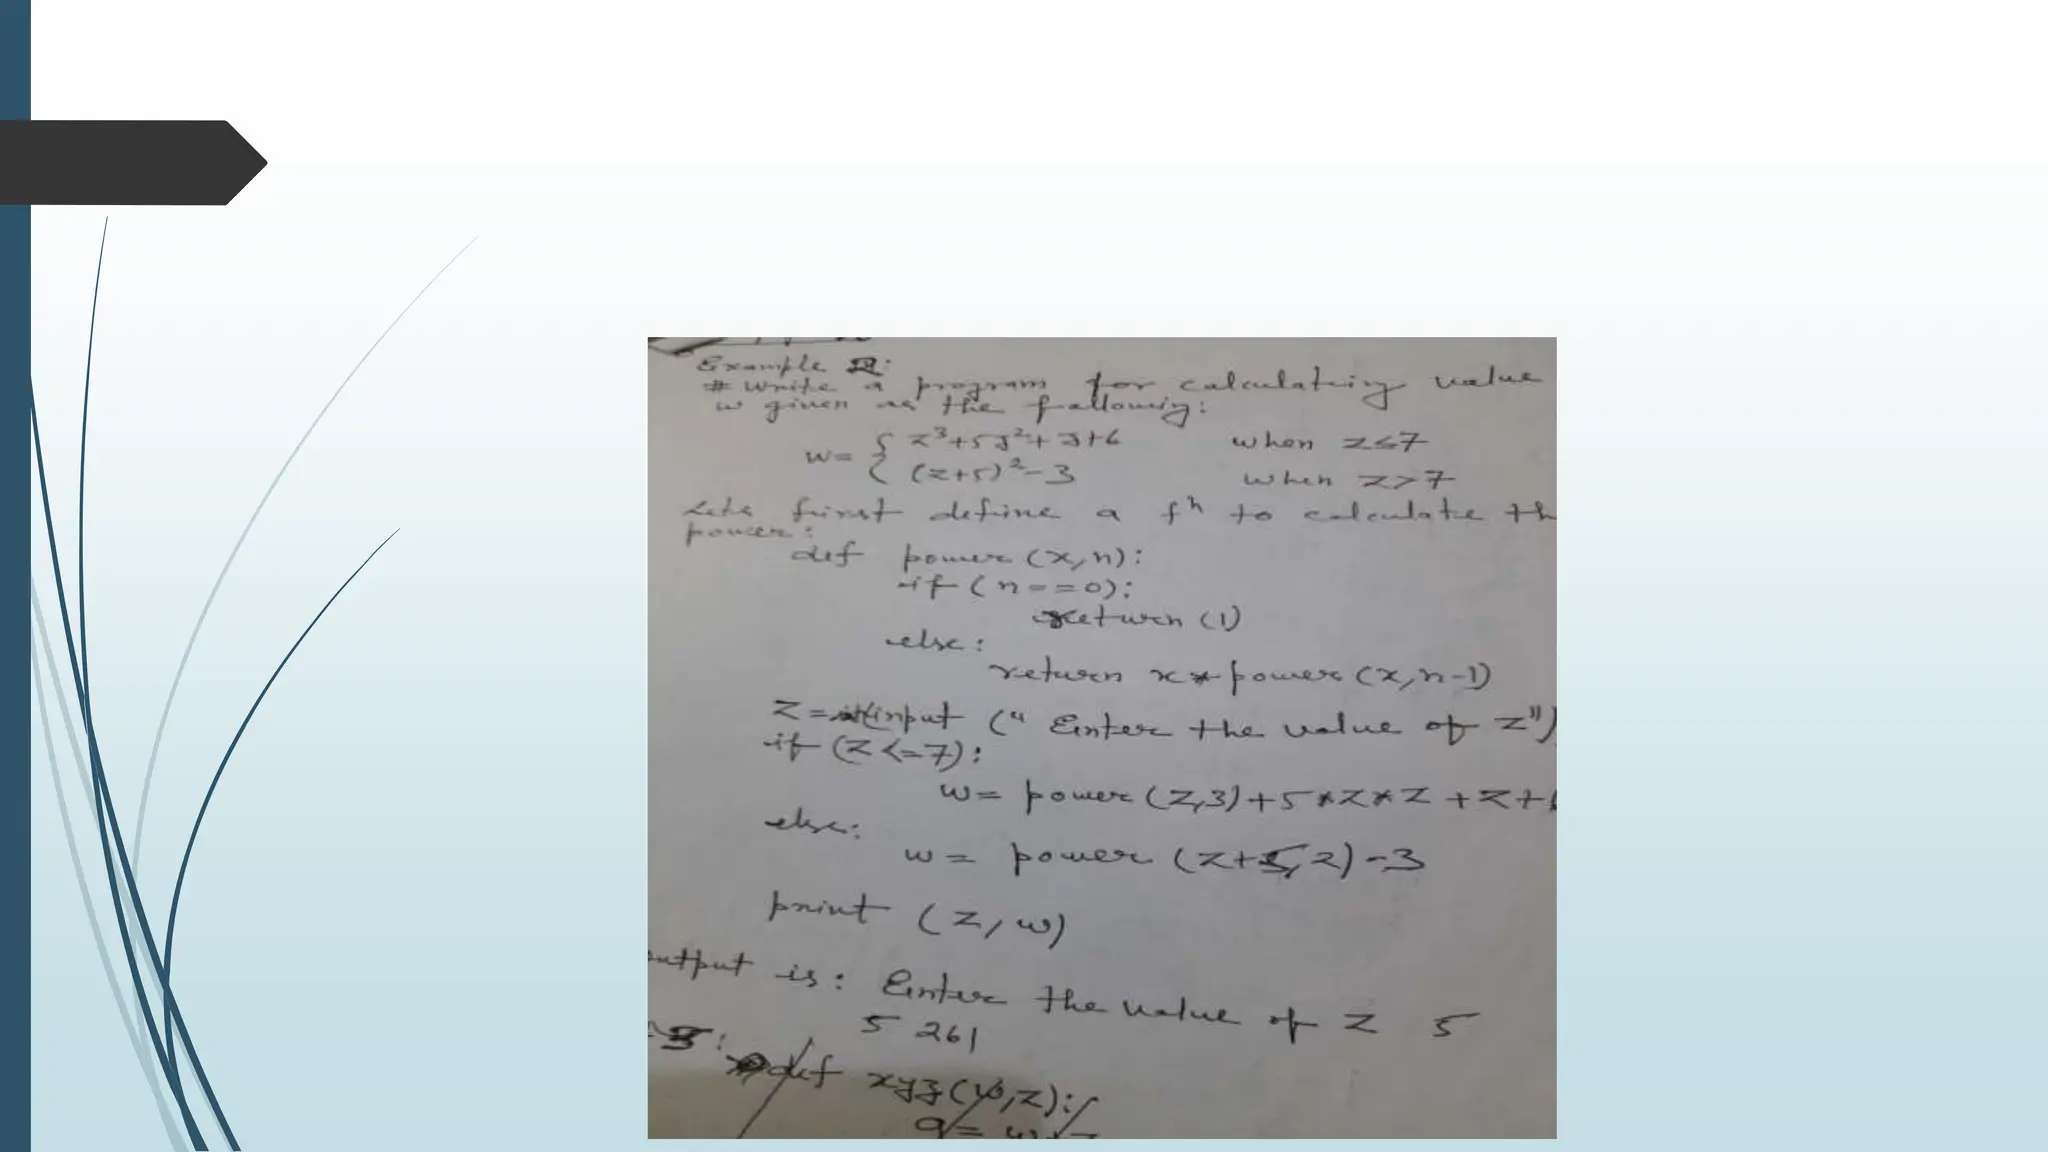 Example 2:
# Write a program for calculating value
w given as the following:
w= { z³+5z²+z+6 when z≤7
(z+5)²-3 when z>7
Lets first define a fⁿ to calculate th
power:
def power (x,n):
if (n==0):
return (1)
else:
return x*power (x,n-1)
z= input (" Enter the value of z")
if (z<=7):
w= power (z,3)+5*z*z+z+6
else:
w= power (z+5,2)-3
print (z,w)
output is: Enter the value of z 5
5 261
3:
def xyz(w,z):